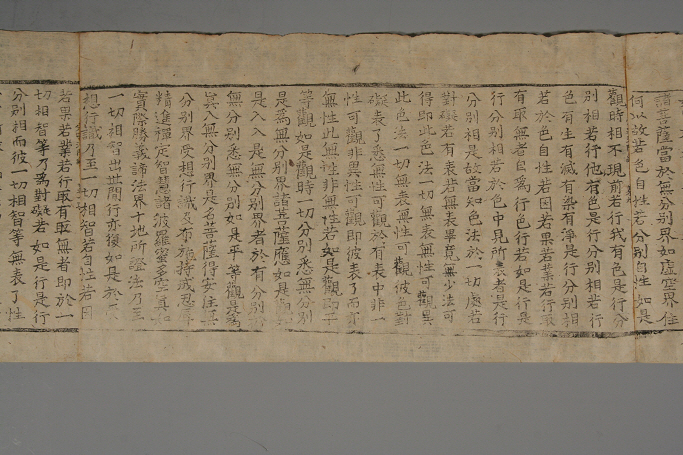 諸菩薩當於無分別界如虛空界住
何以故若色自性若分別自性如是
觀時相不現前若行我有色是行分
別相若行他有色是行分別相若行
色有生有滅有染有淨是行分別相
若於色自性若因若果若業若行取
有取無者皆為行色行若如是行是
行分別相若於色中見所表者是行
分別相是故當知色法於一切處若
對礙若有表若無表畢竟無少法可
得即此色法一切無表無性可觀異
此色法一切無表無性可觀彼色對
礙表了悉無性可觀於有表中非一
性可觀非異性可觀即彼表了而亦
無性此無性非無性若如是觀
等觀如是觀時一切分別悉無分別
是為無分別諸菩薩應如是
是入入是無分別界者於有分別
無分別悉無分別如是平等觀
冥入無分別界是名菩薩得安住
分別界受想行識及布施持戒忍
精進禪定智慧諸波羅蜜多空真如
實際勝義諦法界十地所證法乃至
一切相智出世間行亦復如是於
想行識乃至一切相智若自性若因
若果若業若行取有取無者即於一
切相智等乃為對礙若如是行是行
分別相而彼一切相智等無表了性